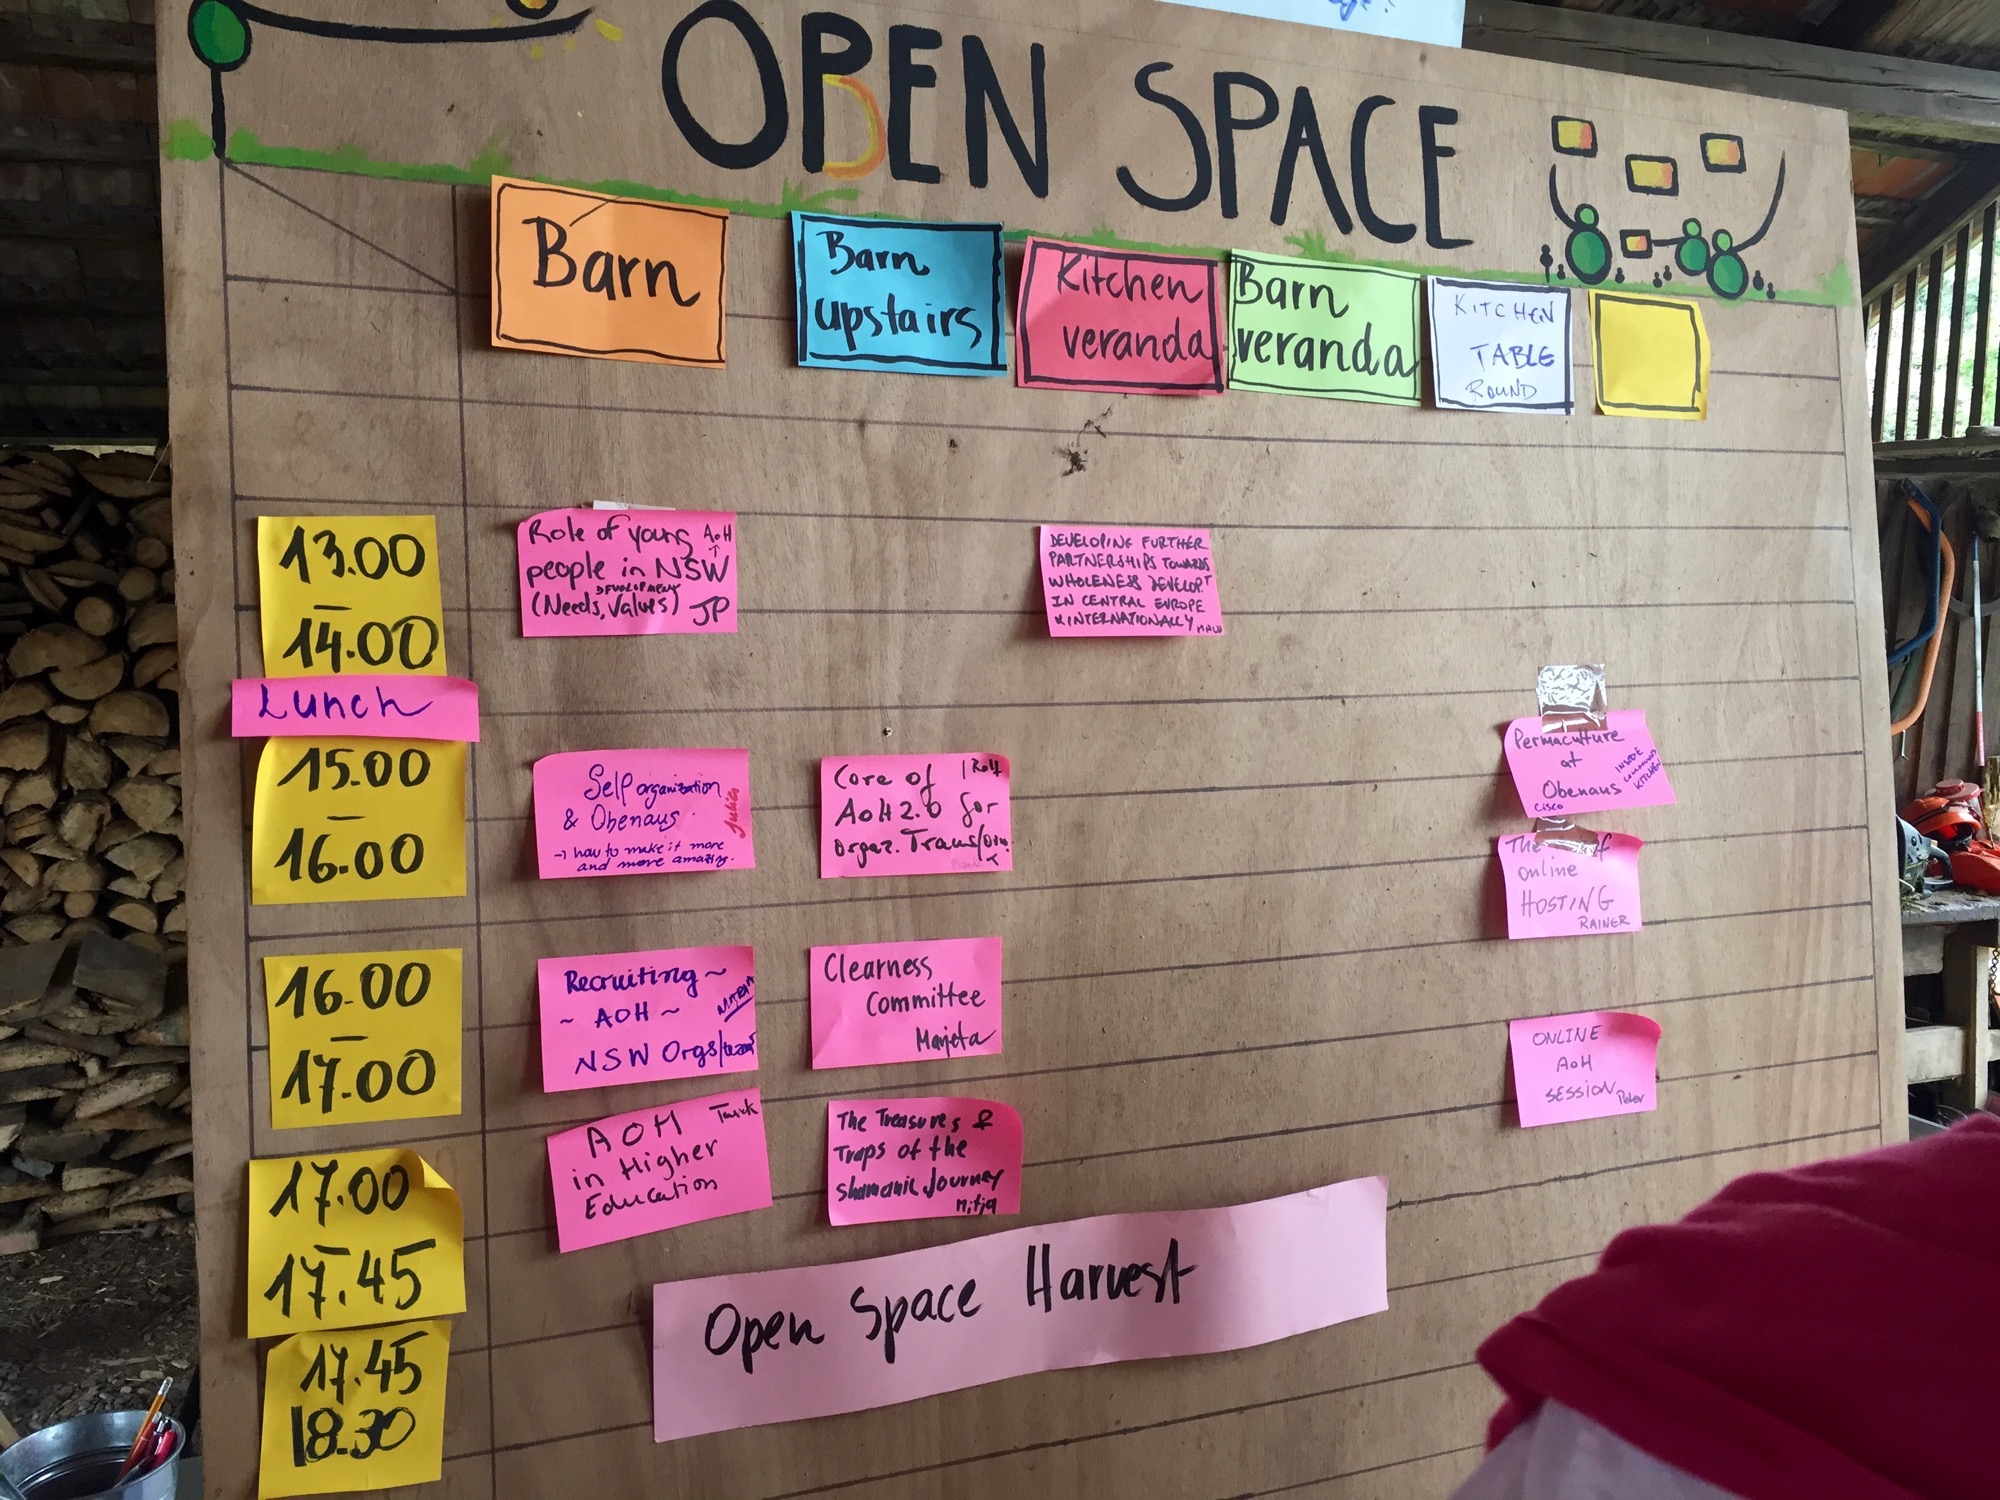 OPEN SPACE
Barn
Barn
upstairs
Kitchen
veranda
Barn
veranda
KITCHEN
TABLE
ROUND
13.00
–
14.00
Role of young AOH
people in NSW
DEVELOPMENT
(Needs, Values) JP
DEVELOPING FURTHER
PARTNERSHIPS TOWARDS
WHOLENESS DEVELOP'T
IN CENTRAL EUROPE
& INTERNATIONALLY
Lunch
15.00
–
16.00
Self organization
& Obenaus
→ how to make it more
and more amazing.
Core of
AoH 2.0 for
organ. Transform.
Rolf
Permaculture
at
Obenaus
Cisco
INSIDE
COMMUNITY
KITCHEN
The of
online
HOSTING
RAINER
16.00
–
17.00
Recruiting ~
~ AOH ~
NSW Orgs/
Clearness
Committee
Marjeta
ONLINE
AOH
SESSION Peter
17.00
–
17.45
AOH
in Higher
Education
The Treasures &
Traps of the
Shamanic Journey
Mitja
17.45
18.30
Open Space Harvest